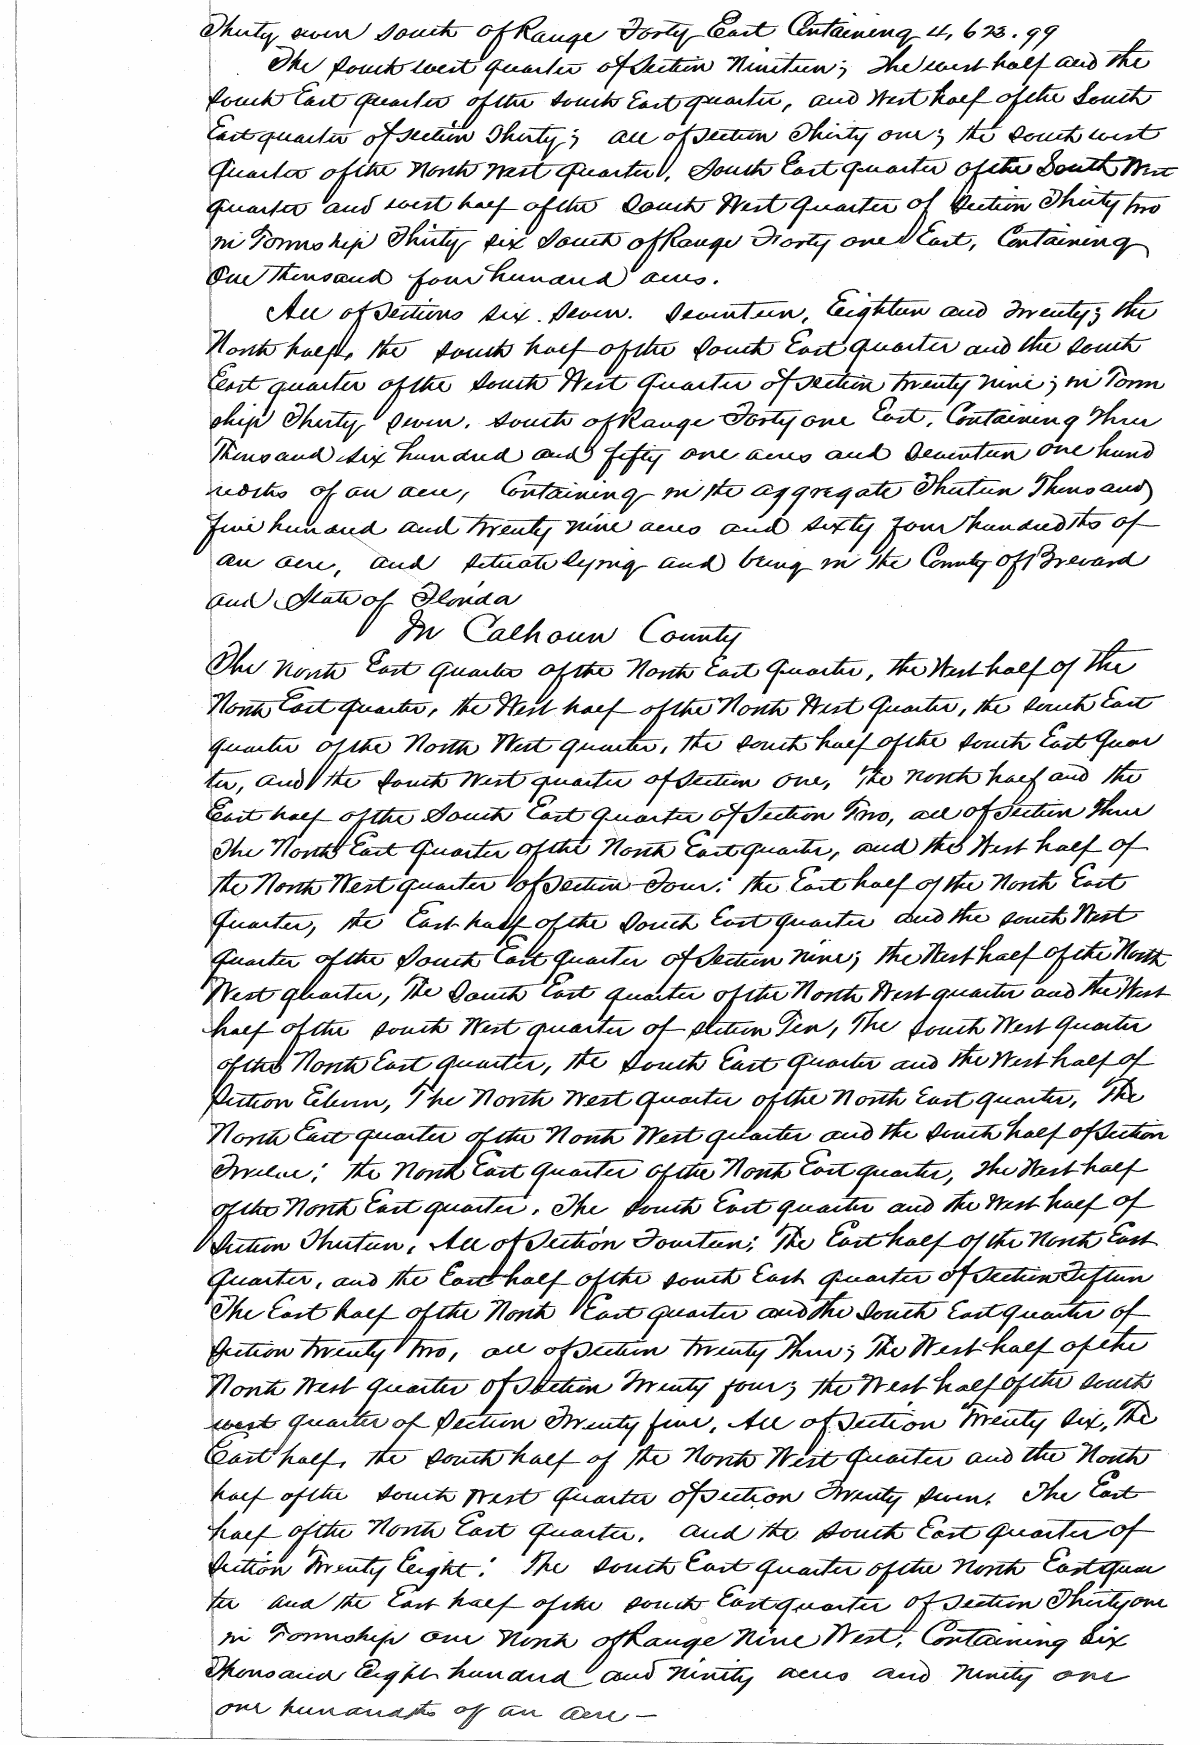 Thirty seven South of Range Forty East Containing 4,623.99
The South west quarter of Section Nineteen; The west half and the
South East quarter of the South East quarter, and West half of the South
East quarter of Section Thirty; all of Section Thirty one; the South west
Quarter of the North West Quarter, South East Quarter of the South West
quarter and west half of the South West Quarter of Section Thirty two
in Township Thirty six South of Range Forty one East, Containing
One Thousand four hundred acres.
All of Sections six. Seven. Seventeen, Eighteen and Twenty; the
North half, the South half of the South East quarter and the South
East quarter of the South West Quarter of Section twenty nine; in Town
ship Thirty Seven. South of Range Forty one East. Containing Three
Thousand six hundred and fifty one acres and Seventeen one hund
redths of an acre, Containing in the aggregate Thirteen Thousand
five hundred and twenty nine acres and sixty four hundredths of
an acre, and situate lying and being in the County of Brevard
and State of Florida
In Calhoun County
The North East Quarter of the North East Quarter, the West half of the
North East quarter, the West half of the North West Quarter, the South East
quarter of the North West quarter, the South half of the South East Quar
ter, and the South West quarter of Section one, The North half and the
East half of the South East Quarter of Section Two, all of Section Three
The North East Quarter of the North East quarter, and the West half of
the North West quarter of Section Four: the East half of the North East
Quarter, the East half of the South East Quarter and the South West
Quarter of the South East Quarter of Section nine; the West half of the North
West quarter, The South East quarter of the North West quarter and the West
half of the South West quarter of Section Ten, The South West Quarter
of the North East quarter, the South East Quarter and the West half of
Section Eleven, The North West Quarter of the North East quarter, The
North East quarter of the North West quarter and the South half of Section
Twelve; the North East Quarter of the North East quarter, the West half
of the North East quarter. The South East quarter and the West half of
Section Thirteen, All of Section Fourteen; The East half of the North East
Quarter, and the East half of the South East quarter of Section Fifteen
The East half of the North East quarter and the South East quarter of
Section twenty two, all of Section twenty Three; The West half of the
North West Quarter of Section Twenty four; the West half of the South
west quarter of Section Twenty five, All of Section Twenty six, The
East half, the South half of the North West Quarter and the North
half of the South West Quarter of Section Twenty Seven. The East
half of the North East quarter. and the South East quarter of
Section Twenty Eight: The South East Quarter of the North East quar
ter and the East half of the South East quarter of Section Thirty one
in Township one North of Range Nine West, Containing Six
Thousand Eight hundred and Ninity acres and Ninety one
one hundredths of an acre —